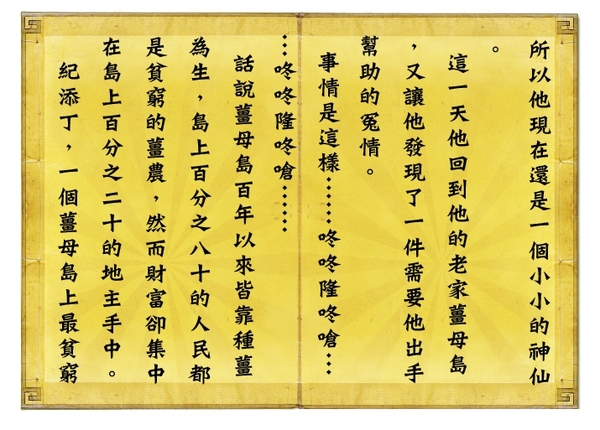 所以他現在還是一個小小的神仙
。
這一天他回到他的老家薑母島
，又讓他發現了一件需要他出手
幫助的冤情。
事情是這樣……咚咚隆咚嗆…
…咚咚隆咚嗆……
話說薑母島百年以來皆靠種薑
為生，島上百分之八十的人民都
是貧窮的薑農，然而財富卻集中
在島上百分之二十的地主手中。
紀添丁，一個薑母島上最貧窮